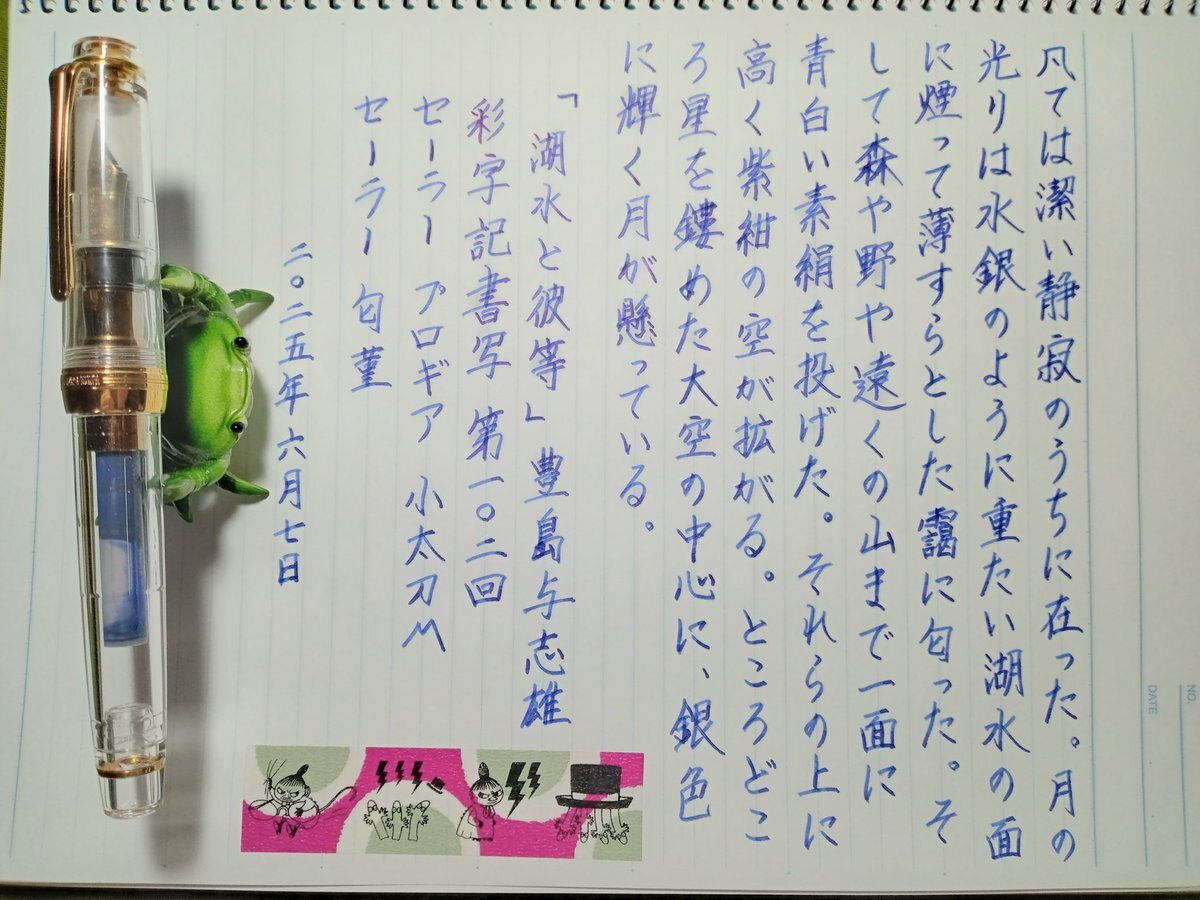 凡ては潔い静寂のうちに在った。月の
光りは水銀のように重たい湖水の面
に煙って薄すらとした靄に匂った。そ
して森や野や遠くの山まで一面に
青白い素絹を投げた。それらの上に
高く紫紺の空が拡がる。ところどこ
ろ星を鏤めた大空の中心に、銀色
に輝く月が懸っている。
「湖水と彼等」豊島与志雄
彩字記書写 第一〇二回
セーラー プロギア 小太刀M
セーラー 匂菫
二〇二五年六月七日
NO.
DATE